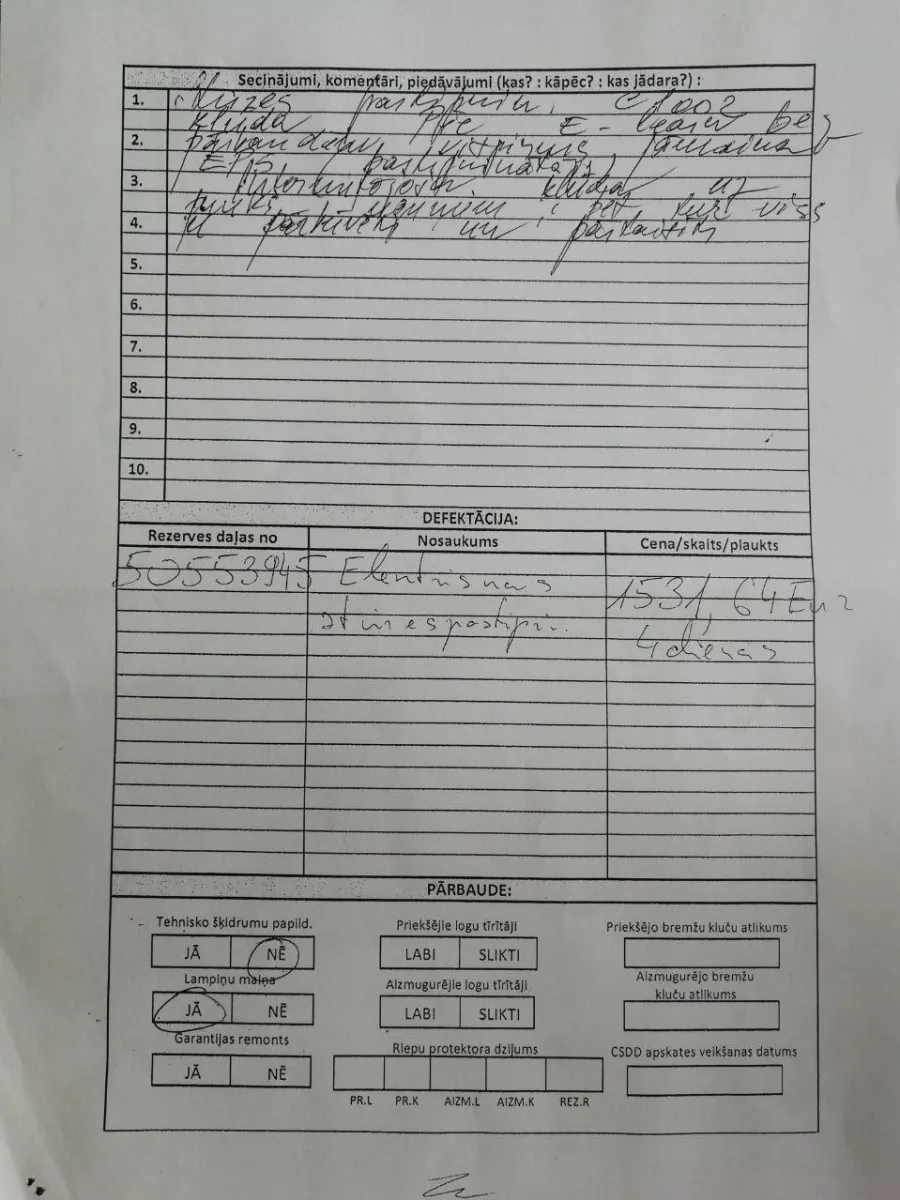 Secinājumi, komentāri, piedāvājumi (kas? : kāpēc? : kas jādara?) :
1.
kļūda Pēc E- bez
2.
jāmaina
EPS, pastiprinātājs
3.
kļūdas uz
viss
4.
ir un
5.
6.
7.
8.
9.
10.
DEFEKTĀCIJA:
Rezerves daļas no Nosaukums Cena/skaits/plaukts
50553945 Elektriskais 1531,64 Eur
stūres pastipr. 4 dienas
PĀRBAUDE:
Tehnisko šķidrumu papild. Priekšējie logu tīrītāji Priekšējo bremžu kluču atlikums
JĀ NĒ LABI SLIKTI
Lampiņu maiņa Aizmugurējie logu tīrītāji Aizmugurējo bremžu
kluču atlikums
JĀ NĒ LABI SLIKTI
Garantijas remonts Riepu protektora dziļums CSDD apskates veikšanas datums
JĀ NĒ
PR.L PR.K AIZM.L AIZM.K REZ.R